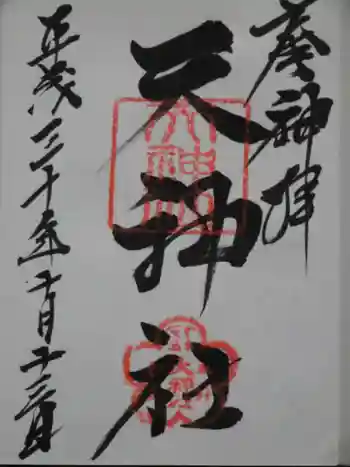 奉神拝
天神社
平成三十年十月十三日